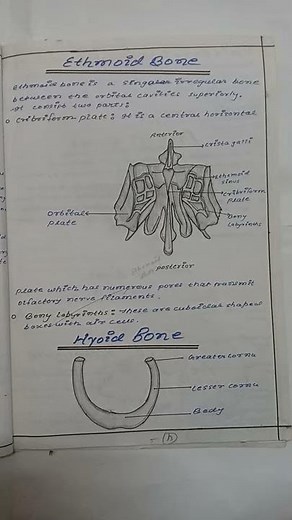 Ethmoid Bone
Ethmoid bone is a singular irregular bone
between the orbital cavities superiorly.
It consist two parts:
o Cribriform plate: It is a central horizontal
Anterior
Crista galli
Ethmoid
sinus
Cribriform
plate
Orbital
plate
Bony
labyrinths
posterior
plate which has numerous pores that transmit
olfactory nerve filaments.
o Bony labyrinths: These are cuboidal shaped
boxes with air cells.
Hyoid Bone
Greater cornu
Lesser cornu
Body